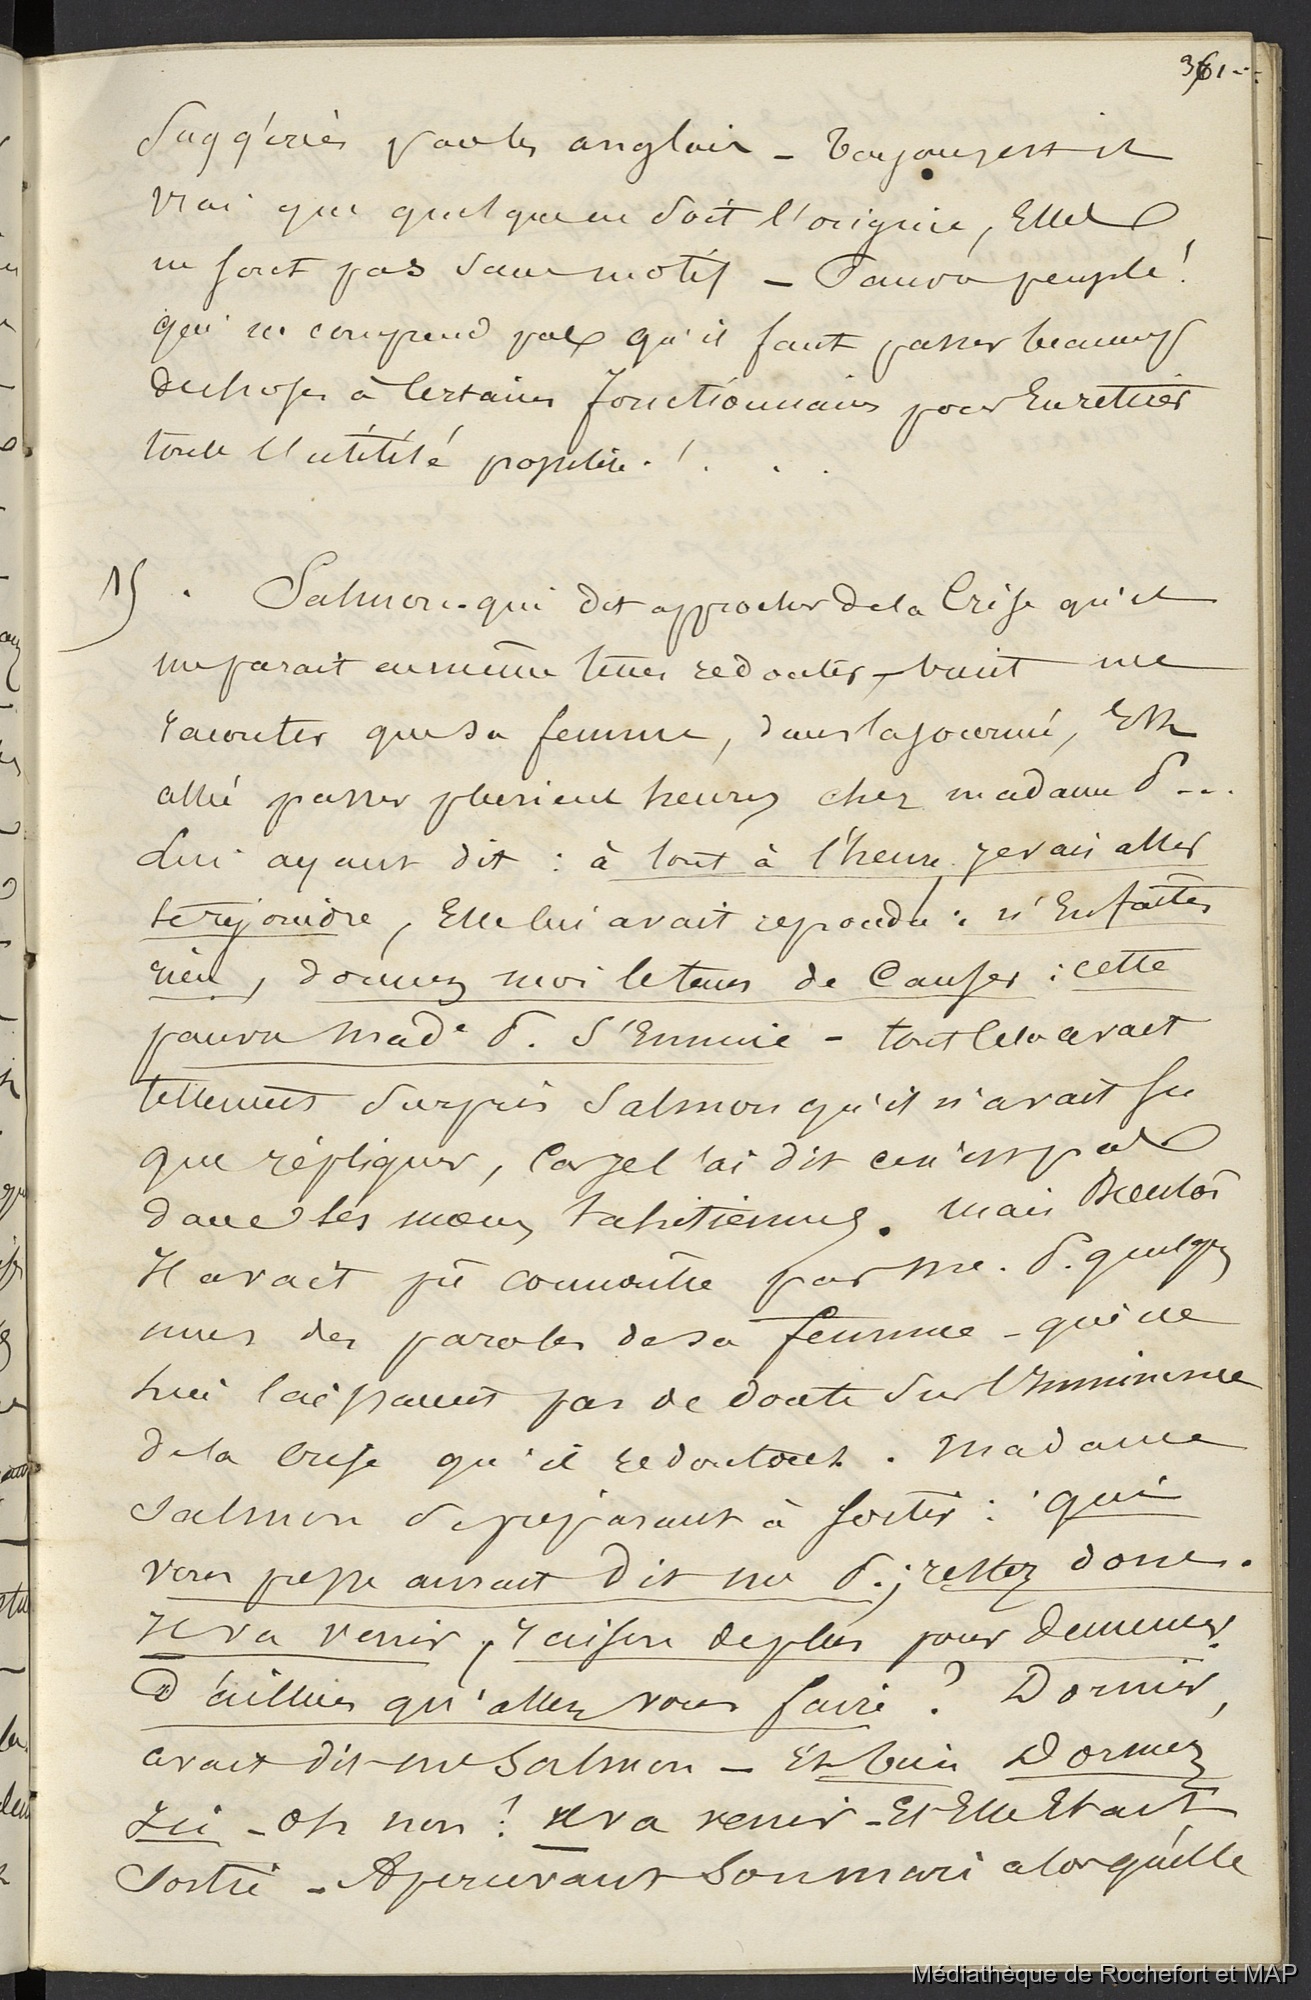 361
Suggérées par les anglais – Toujours est il
vrai que quelqu'en soit l'origine, Elles
ne sont pas sans motif – Pauvre peuple!
qui ne comprend pas qu'il faut passer beaucoup
de choses à Certains fonctionnaires pour En retirer
toute l'utilité possible. ! . . .
15 . Salmon - qui dit approcher de la Crise qu'il
me parait en même tems redouter, – vient me
raconter que sa femme, dans la journée, Ett
allé passer plusieurs heures chez madame S...
Lui ayant dit : à tout à l'heure je vais aller
te rejoindre, Elle lui avait repondu : n'En faites
rien, donnez moi le tems de Causer : cette
pauvre Made S. S'Ennuie – tout Cela avait
tellement Surpris Salmon qu'il n'avait su
que répliquer, Car je l'ai dit ce n'est pas
dans les mœurs tahitiennes. mais Bientôt
Il avait pû connoitre par me. S. quelques
unes des paroles de sa femme – qui ne
lui laissaient pas de doute Sur l'Imminence
de la Crise qu'il redoutait . Madame
Salmon se préparant à Sortir : qui
vous presse aurait dit me S. ; restez donc.
Il va venir, raison de plus pour demeurer.
D'ailleurs qu'allez vous faire ? Dormir,
avait dit me Salmon – Eh bien Dormez
Ici – Oh non ! Il va venir – Et Elle Etait
Sortie – Apercevant Son mari alorsqu'elle
Médiathèque de Rochefort et MAP